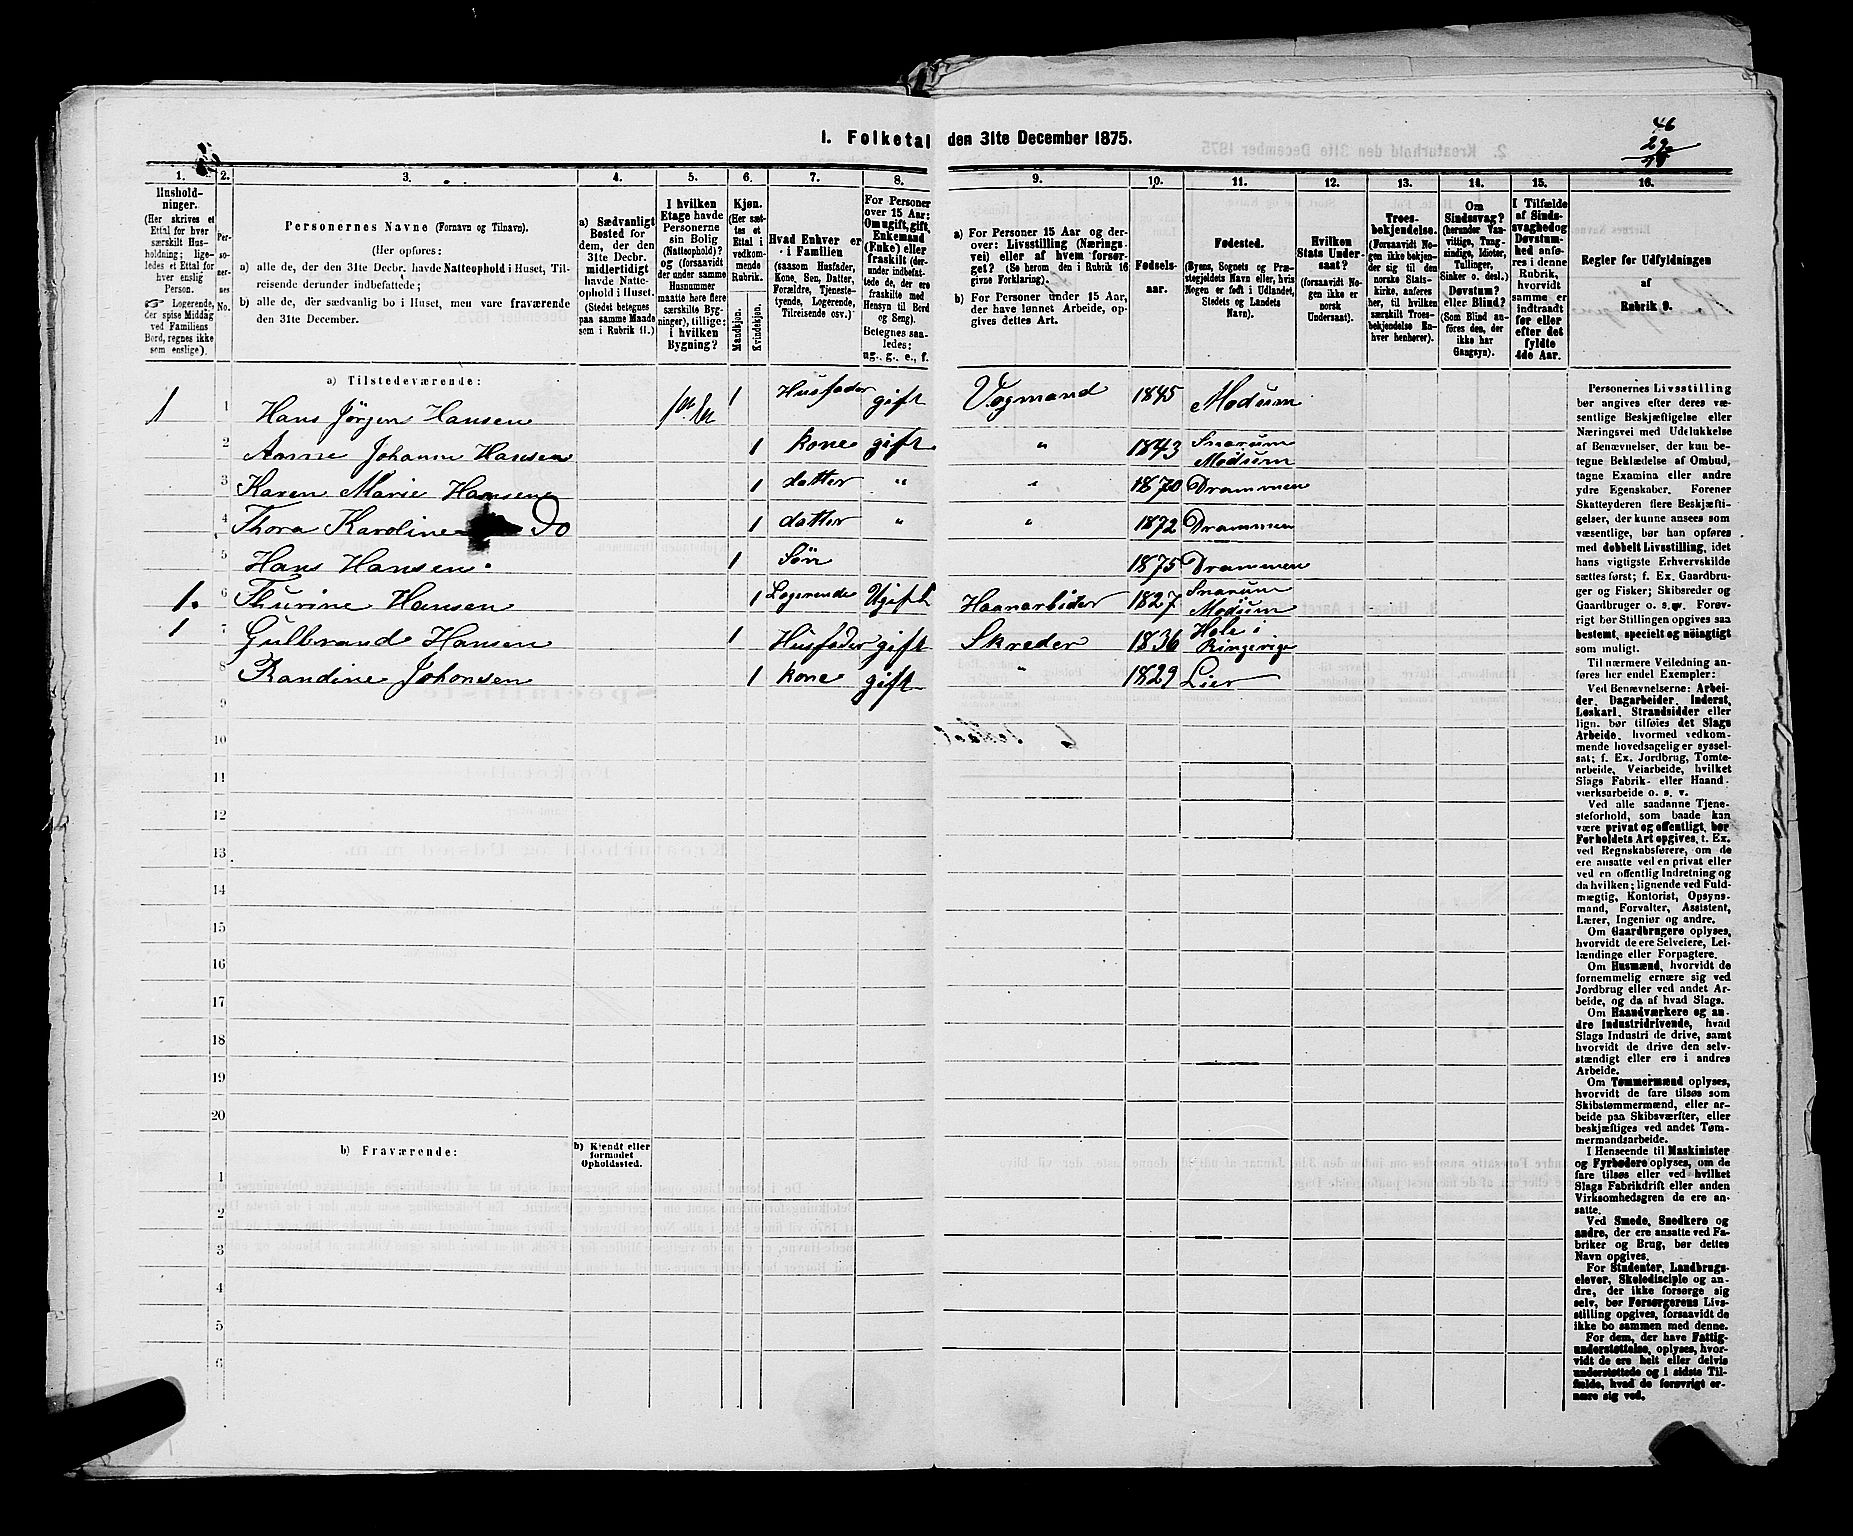 1. Folketal den 31te December 1875.
46
29
1.
2.
3.
4.
5.
6.
7.
8.
9.
10.
11.
12.
13.
14.
15.
16.
Husholdninger.
(Her skrives et
Ettal for hver
særskilt Husholdning;
ligeledes et Ettal for
hver enslig
Person.
Logerende,
der spise Middag
ved Familiens
Bord, regnes ikke
som enslige).
Personernes No.
Personernes Navne (Fornavn og Tilnavn).
(Her opføres:
a) alle de, der den 31te Decbr. havde Natteophold i Huset, Tilreisende
derunder indbefattede;
b) alle de, der sædvanlig bo i Huset, men vare fraværende
den 31te December.
a) Sædvanligt
Bosted for
dem, der den
31te Decbr.
midlertidigt
havde Natteophold
i Huset.
(Stedet betegnes
paa samme Maade
som i Rubrik 11.)
I hvilken
Etage havde
Personerne
sin Bolig
(Natteophold)?
og (forsaavidt
der under samme
Husnummer
maatte høre flere
særskilte Bygninger),
tillige:
i hvilken
Bygning?
Kjøn.
(Her sættes
et
Ettal i
vedkommende
Rubrik.
Mandkjøn.
Kvindekjøn.
Hvad Enhver er
i Familien
(saasom Husfader,
Kone, Søn, Datter,
Forældre, Tjenestetyende,
Logerende,
Tilreisende osv.)
For Personer
over 15 Aar:
Om ugift, gift,
Enkemand
(Enke) eller
fraskilt (derunder
indbefattede
de, der ere
fraskilte med
Hensyn til Bord
og Seng).
Betegnes saaledes:
ug., g., e., f.
a) For Personer 15 Aar og derover:
Livsstilling (Næringsvei)
eller af hvem forsørget?
(Se herom den i Rubrik 16
givne Forklaring).
b) For Personer under 15 Aar,
der have lønnet Arbeide, opgives
dettes Art.
Fødselsaar.
Fødested.
(Byens, Sognets og Præstegjeldets
Navn eller, hvis
Nogen er født i Udlandet,
Stedets og Landets
Navn).
Hvilken
Stats Undersaat?
(forsaavidt Nogen
ikke er
norsk
Undersaat).
Troesbekjendelse.
(Forsaavidt Nogen
ikke bekjender
sig til den
norske Statskirke,
anføres
her, til hvilken
særskilt Troesbekjendelse
Enhver
henhører).
Om
Sindssvag?
(herunder Vanvittige,
Tungsindige,
Idioter,
Tullinger,
Sinker o. desl.)
Døvstum?
eller Blind?
(Som Blind anføres
den, der
ikke har
Gangsyn).
I Tilfælde
af Sindssvaghed
og
Døvstumhed
anføres
i denne
Rubrik,
hvorvidt
samme er
indtraadt
før eller
efter det
fyldte
4de Aar.
Regler for Udfyldningen
af
Rubrik 9.
a) Tilstedeværende:
1 1 Hans Jørgen Hansen 1 Husfader gift Vogmand 1845 Modum
2 Anne Johanne Hansen 1 kone gift " 1843 Snarum Modum
3 Karen Marie Hansen 1 datter " " 1870 Drammen
4 Thora Karoline Do 1 datter " " 1872 Drammen
5 Hans Hansen 1 Søn 1875 Drammen
1. 6 Thurine Hansen 1 Logerende Ugift Haanarbider 1827 Snarum Modum
1 7 Gulbrand Hansen 1 Husfader gift Skreder 1836 Hole i Ringerige
8 Randine Johansen 1 kone gift " 1829 Lier
9
10
11
12
13
14
15
16
17
18
19
20
b) Fraværende:
b) Kjendt eller
formodet
Opholdssted.
1
2
3
4
5
6
Personernes Livsstilling
bør angives efter deres væsentlige
Beskjæftigelse eller
Næringsvei med Udelukkelse
af Benævnelser, der kun betegne
Beklædelse af Ombud,
tagne Examina eller andre
ydre Egenskaber. Forener
Skatteyderen flere Beskjæftigelser,
der kunne ansees som
væsentlige, bør han opføres
med dobbelt Livsstilling, idet
hans vigtigste Erhvervskilde
sættes først; f. Ex. Gaardbruger
og Fisker; Skibsreder og
Gaardbruger o. s. v. Forøvrigt
bør Stillingen opgives saa
bestemt, specielt og nøiagtigt
som muligt.
Til nærmere Veiledning anføres
her endel Exempler:
Ved Benævnelserne: Arbeider,
Dagarbeider, Inderst,
Løskarl, Strandsidder eller
lign. bør tilføies det Slags
Arbeide, hvormed vedkommende
hovedsagelig er sysselsat;
f. Ex. Jordbrug, Tomtearbeide,
Veiarbeide, hvilket
Slags Fabrik- eller Haandværksarbeide
o. s. v.
Ved alle saadanne Tjenesteforhold,
som baade kan
være privat og offentligt, bør
Forholdets Art opgives, t. Ex.
ved Regnskabsførere, om de
ere ansatte ved en privat eller
ved en offentlig Indretning og
da hvilken; lignende ved Fuldmægtig,
Kontorist, Opsynsmand,
Forvalter, Assistent,
Lærer, Ingeniør og andre.
Om Gaardbrugere oplyses,
hvorvidt de ere Selveiere, Leilændinge
eller Forpagtere.
Om Husmænd, hvorvidt de
fornemmelig ernære sig ved
Jordbrug eller ved andet Arbeide,
og da af hvad Slags.
Om Haandværkere og andre
industridrivende, hvad
Slags Industri de drive, samt
hvorvidt de drive den selvstændigt
eller ere i andres
Arbeide.
Om Tømmermænd oplyses,
hvorvidt de fare tilsøs som
Skibstømmermænd, eller arbeide
paa Skibsværfter, eller
beskjæftiges ved andet Tømmermandsarbeide.
I Henseende til Maskinister
og Fyrbødere oplyses, om de
fare tilsøs eller ved hvilket
Slags Fabrikdrift eller anden
Virksomhedsgren de ere ansatte.
Ved Smede, Snedkere og
andre, der ere ansatte ved Fabriker
og Brug, bør dettes
Navn opgives.
For Studenter, Landbrugselever,
Skoledisciple og andre,
der ikke forsørge sig
selv, bør Forsørgerens Livsstilling
opgives, forsaavidt de
ikke bo sammen med denne.
For dem, der have Fattigunderstøttelse,
oplyses, hvorvidt
de ere helt eller delvis
understøttede og i sidste Tilfælde,
hvad de forøvrigt ernære
sig ved.